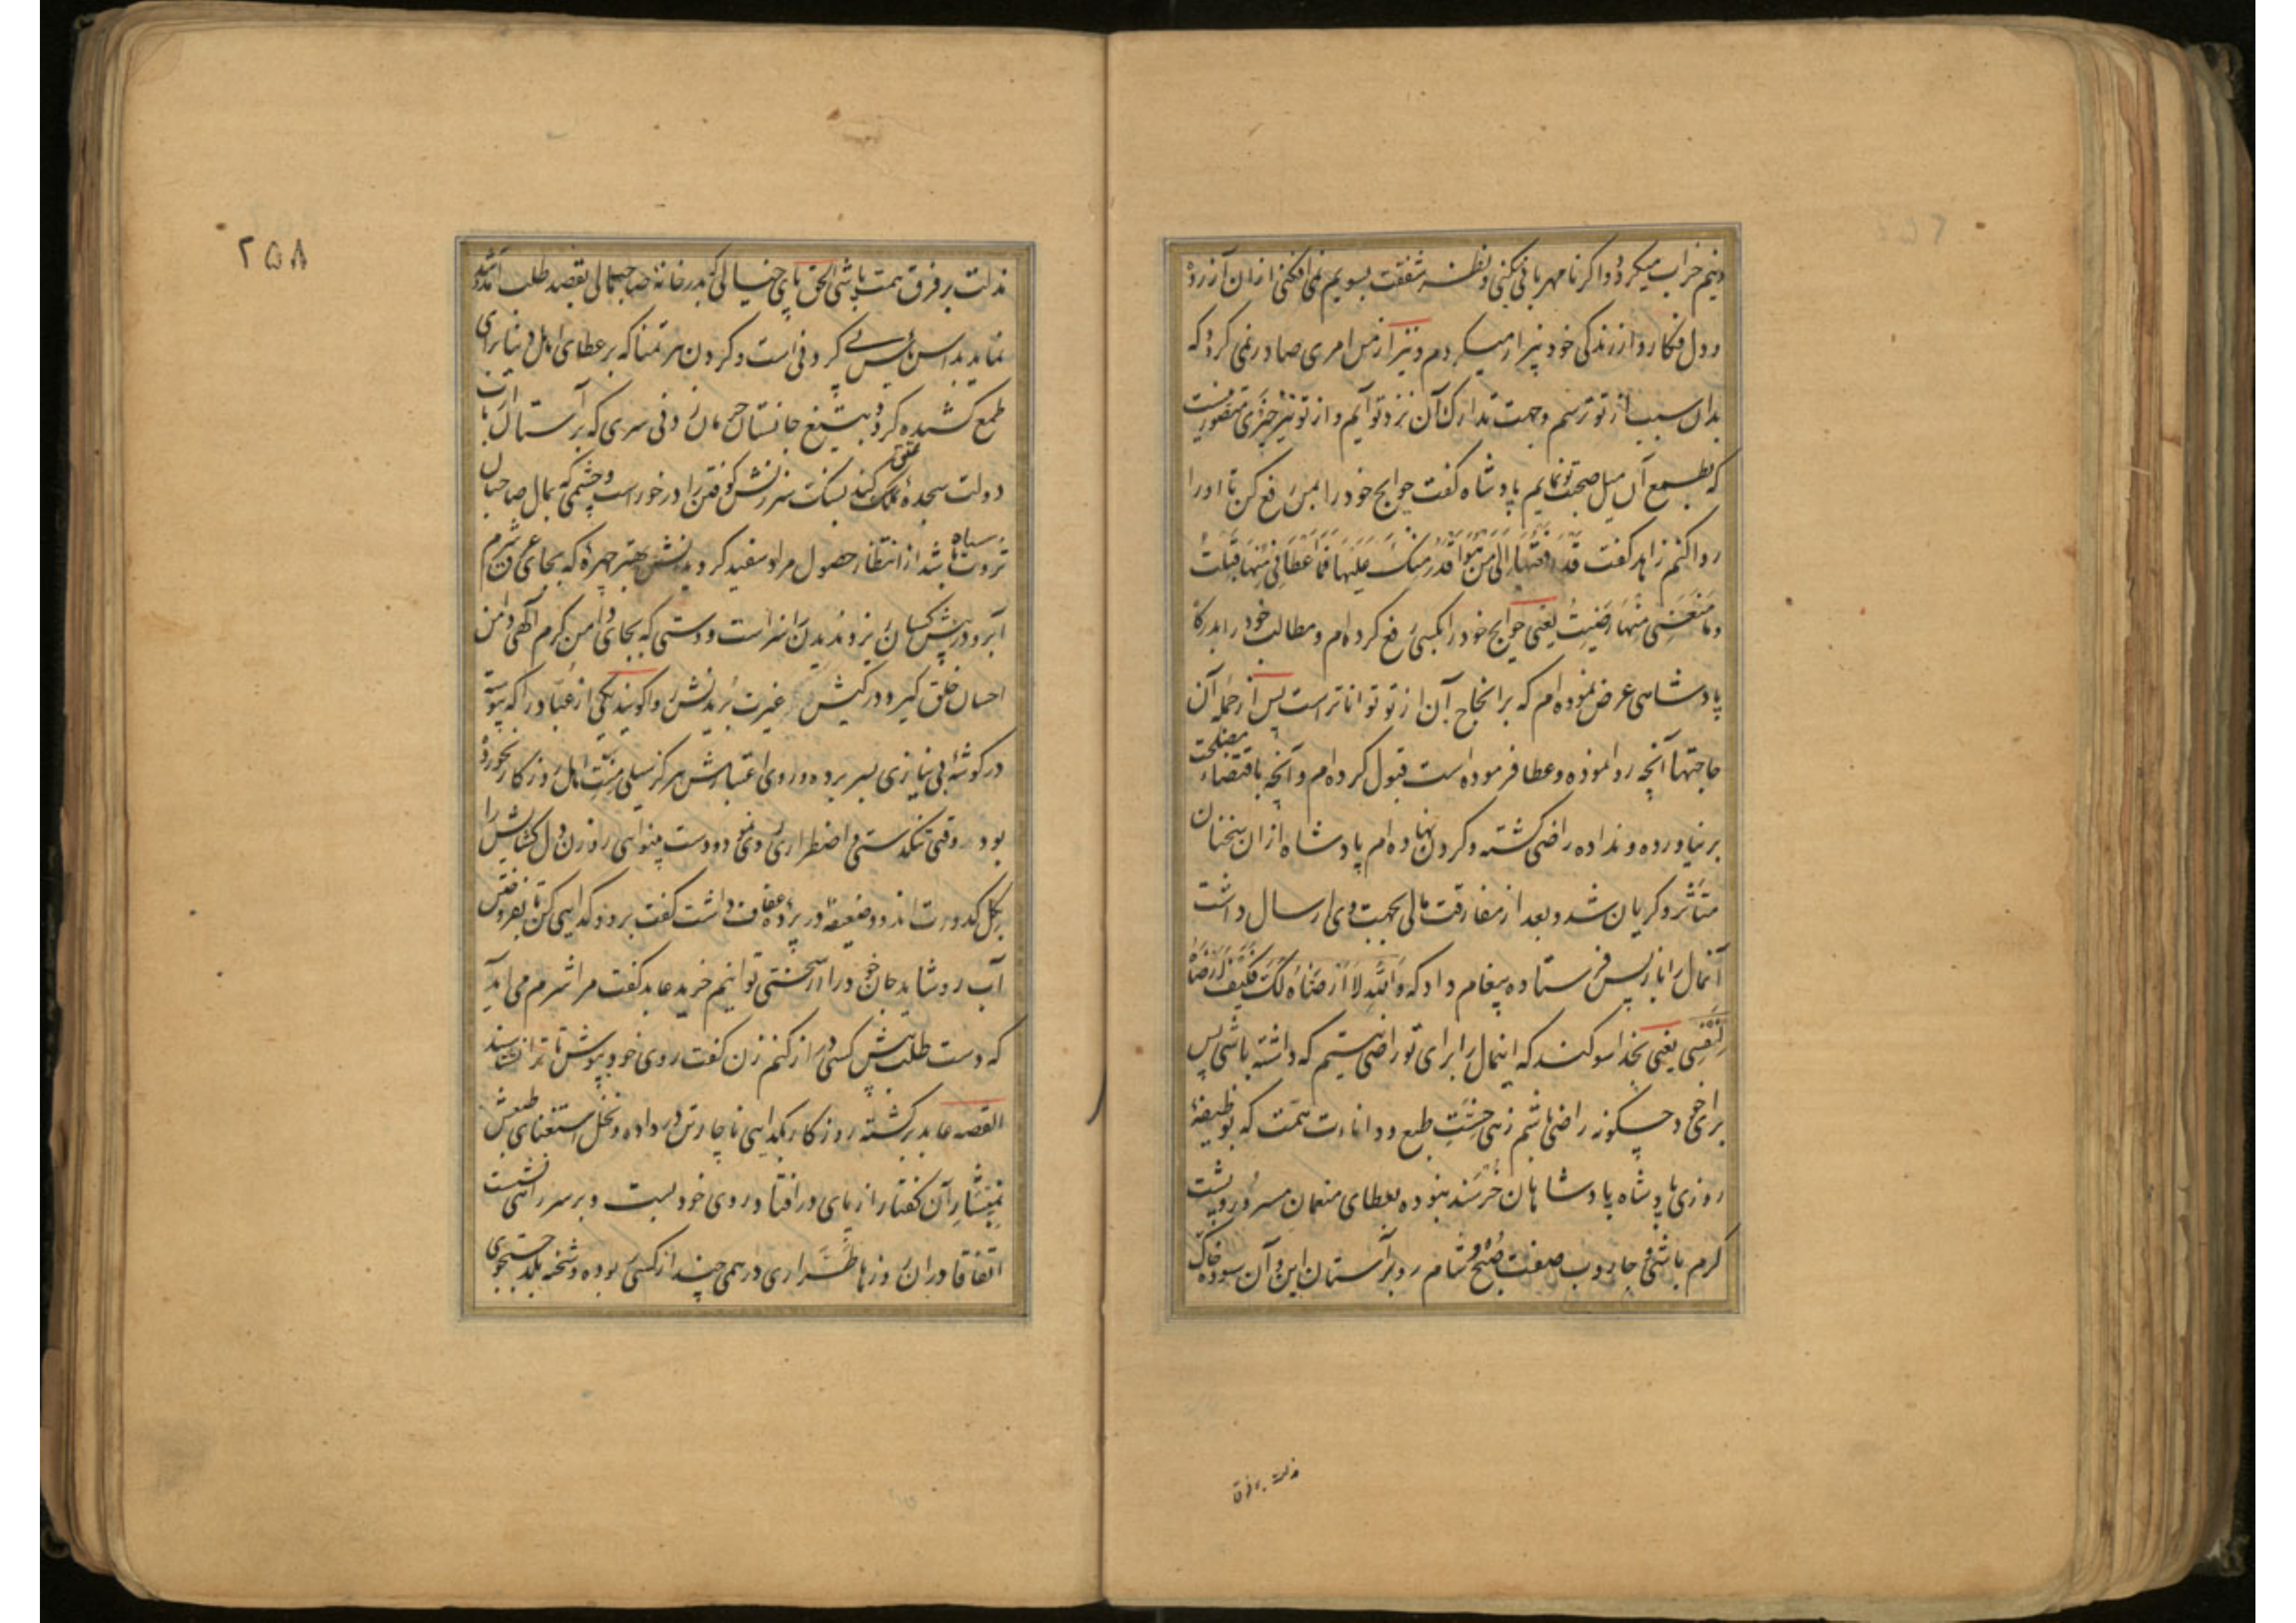 دینم خراب میکردد و اکر نامهربانی میکنی و نظر شفقت بسویم نمی افکنی ازان آزرده
و دل فکار و از زندکی خود بیزار میکردم و نیز از من امری صادر نمی کردد که
بدان سبب از تو ترسم و جهت تدارک آن نزد تو آیم و از تو نیز چیزی متصور نیست
که بطمع آن میل صحبت تو نمایم پادشاه کفت حوایج خود را بمن رفع کن تا اورا
روا کنم زاهد کفت قد رفعتها الی من هو اقدر منک علیها فما اعطانی منها قبلت
و ما منعنی منها رضیت یعنی حوایج خود را بکسی رفع کرده ام و مطالب خود را بدرکاه
پادشاهی عرض نموده ام که بر انجاح آن از تو تواناتر است پس از جمله آن
حاجتها آنچه روا نموده و عطا فرموده است قبول کرده ام و آنچه باقتضاء مصلحت
بر نیاورده و نداده راضی کشته و کردن نهاده ام پادشاه ازان سخنان
متأثر و کریان شد و بعد از مفارقت مالی بجهت وی ارسال داشت
آنمال را باز پس فرستاده پیغام داد که والله لا ارضاه لک فکیف ارضاه
لنفسی یعنی بخدا سوکند که اینمال را برای تو راضی نیستم که داشته باشی پس
برای خود چکونه راضی باشم زهی خست طبع و دنائت همت که بوظیفهٔ
روزی پادشاه پادشاهان خرسند نبوده بعطای منعمان مسرور و بپشت
کرم باشی و جاروب صفت صبح و شام رو بر آستان این و آن سوده خاک
مذلت بر فرق
۲۵۸
مذلت بر فرق همت پاشی الحق پای خیالی که بدر خانهٔ صاحبمالی بقصد طلب آمد شد
نماید بداس یأس پی کردنی است و کردن هر تمنا که بر عطای اهل دنیا برای
طمع کشیده کردد بتیغ جانستان حرمان زدنی سری که بر آستان ارباب
دولت سجدهٔ تملق کند بسنک سرزنش کوفتن را در خور است و چشمی که بمال صاحبان
ثروت سیاه باشد از انتظار حصول مراد سفید کردیدنش بهتر چهرهٔ که بجای عرق شرم
آبرو در پیش کسان ریزد ندیدن را سزاست و دستی که بجای دامن کرم الهی دامن
احسان خلق کیرد در کیش غیرت بریدنش روا کویند یکی از عباد را که پیوسته
در کوشهٔ بی نیازی بسر برده و روی اعتبارش هرکز سیلی منت اهل روزکار نخورده
بود وقتی تنکدستی و اضطراری روی نمود و دست بینوائی روزن دل کشایش را
بکل کدورت اندود ضعیفهٔ در پردهٔ عفاف داشت کفت برو و کدایی کن تا بفروختن
آب رو شاید جان خود را از سختی توانیم خرید عابد کفت مرا شرم می آید
که دست طلب پیش کسی دراز کنم زن کفت روی خود بپوش تا ترا نشناسند
القصه عابد برکشته روزکار بکدایی ناچار تن در داده و نخل استغنای طبعش
بتیشهٔ آن کفتار از پای در افتاد روی خود ببست و بر سر راهی نشست
اتفاقا دران روزها طراری درهمی چند از کسی ربوده و شحنه بلد بجستجوی